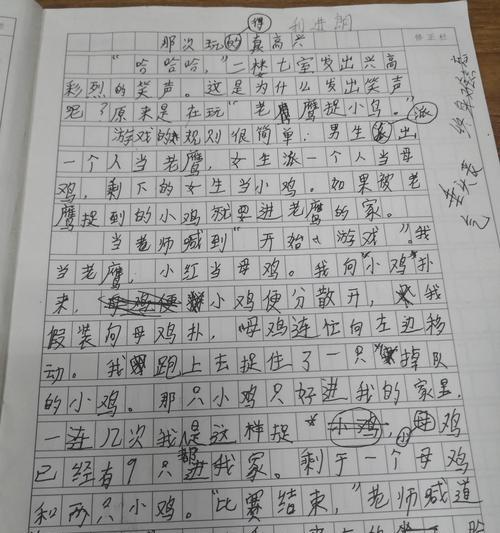 那次玩的得真高兴
"哈哈哈,"二楼七室发出兴高
彩烈的笑声。这是为什么发出笑声
呢?原来是在玩"老鹰捉小鸟。"
游戏的规则很简单:男生派出
一个人当老鹰,女生派一个人当母
鸡,剩下的女生当小鸡。如果被老
鹰捉到的小鸡就要进老鹰的家。
当老师喊到"开始游戏"。我
当老鹰,小红当母鸡。我向小鸡扑
来,小鸡便分散开,我
假装向母鸡扑,母鸡连忙向左边移
动。我跑上去捉住了一只掉队
的小鸡。那只小鸡只好进我的家里,
一连几次我是这样捉小鸡,母鸡
已经有9只都进我家。剩于一个母鸡
和两只小鸡。"比赛结束,"老师喊道